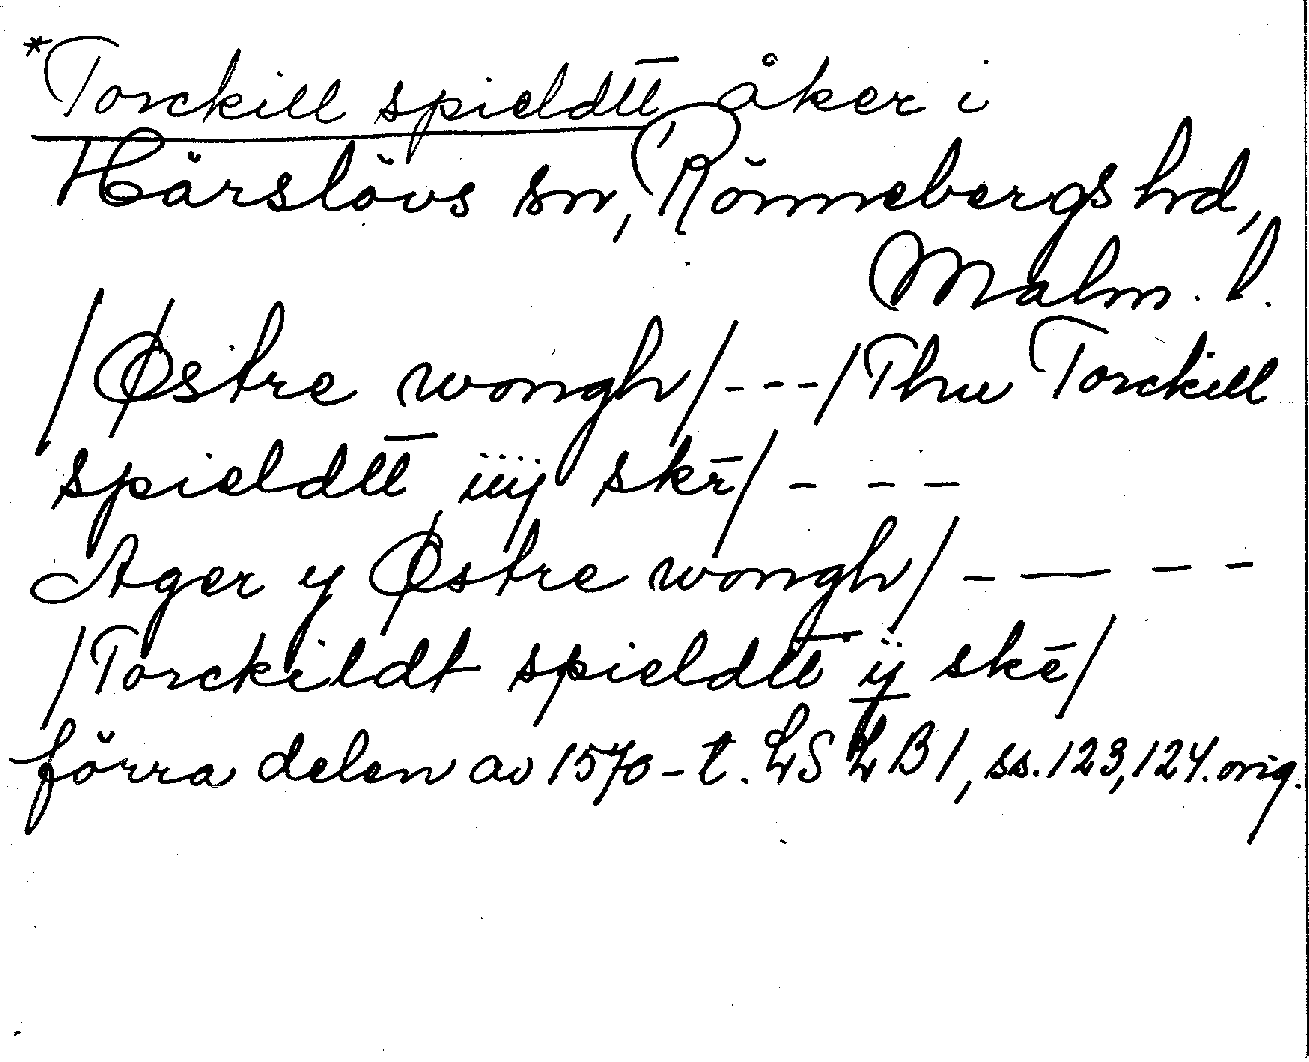 *Torckill spieldtt̄ åker i
Härslövs sn, Rönnebergs hd,
Malm. l.
/Østre wongh/---/Thuu Torckill
spieldtt̄ iiij skē/ - - -
Ager y Østre wongh/ - — - -
/Torckildt spieldtt̄ ij skē/
förra delen av 1570-t. LSLB1, ss. 123, 124. orig.